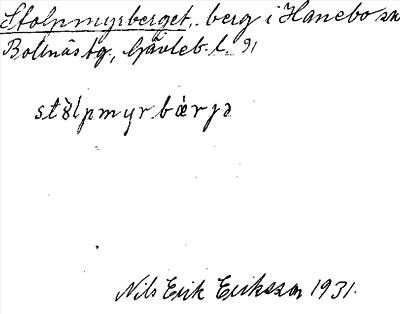 Stolpmyrberget, berg i Hanebo sn
Bollnäs tg., Gävleb. l. 91
stålpmyrbærjə
Nils Erik Eriksson 1931.